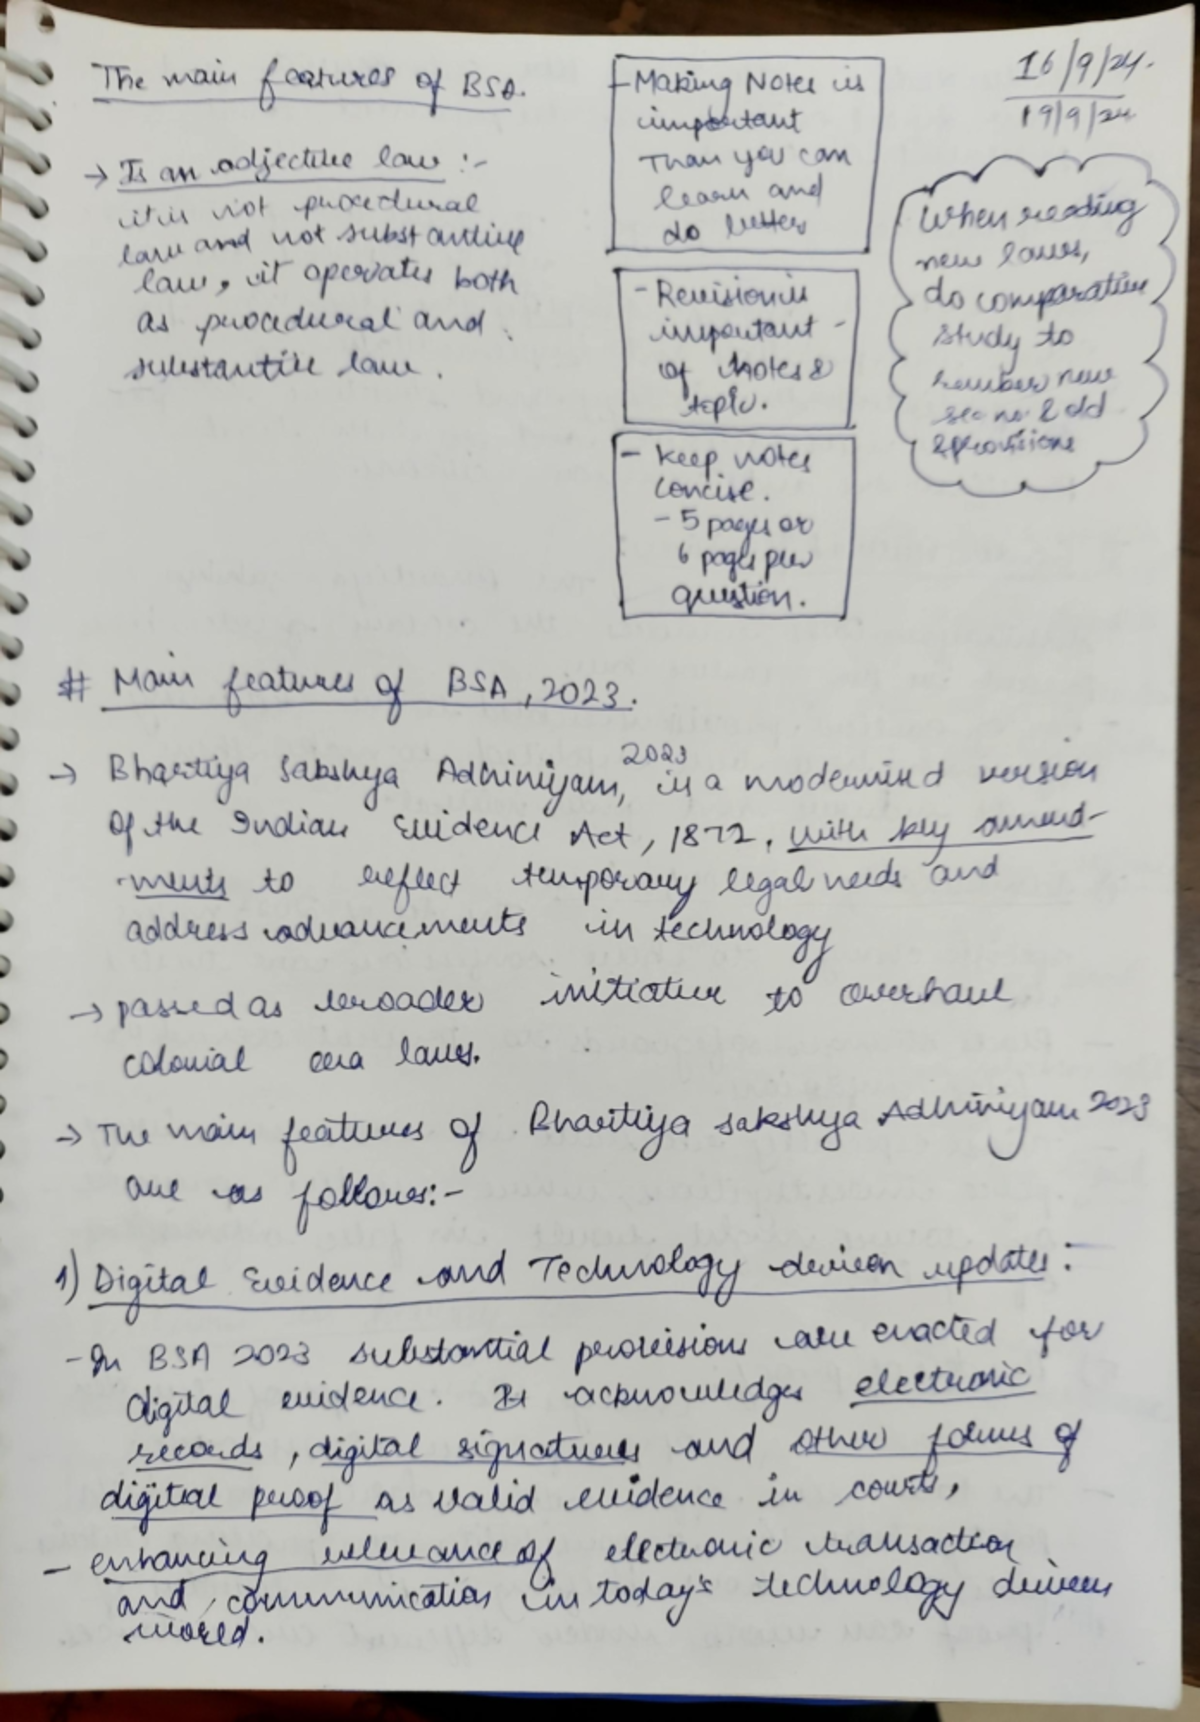 The main features of BSA.
→ Is an adjective law :-
it is not procedural
law and not substantive
law, it operates both
as procedural and
substantive law.
- Making Notes is
important
Than you can
learn and
do better
- Revision is
important -
of Notes &
topic.
- Keep notes
concise.
- 5 pages or
6 pages per
question.
16/9/24.
19/9/24
When reading
new laws,
do comparative
study to
new
sec no & old
provisions
# Main features of BSA, 2023.
→ Bhartiya Sakshya Adhiniyam, 2023 is a modernised version
of the Indian Evidence Act, 1872, with key amend-
ments to reflect temporary legal needs and
address advancements in technology
→ passed as broader initiative to overhaul
colonial era laws.
→ The main features of Bhartiya Sakshya Adhiniyam 2023
are as follows:-
1) Digital Evidence and Technology driven updates:
- In BSA 2023 substantial provisions are enacted for
digital evidence. It acknowledges electronic
records, digital signatures and other forms of
digital proof as valid evidence in courts,
- enhancing relevance of electronic transaction
and communication in today's technology driven
world.